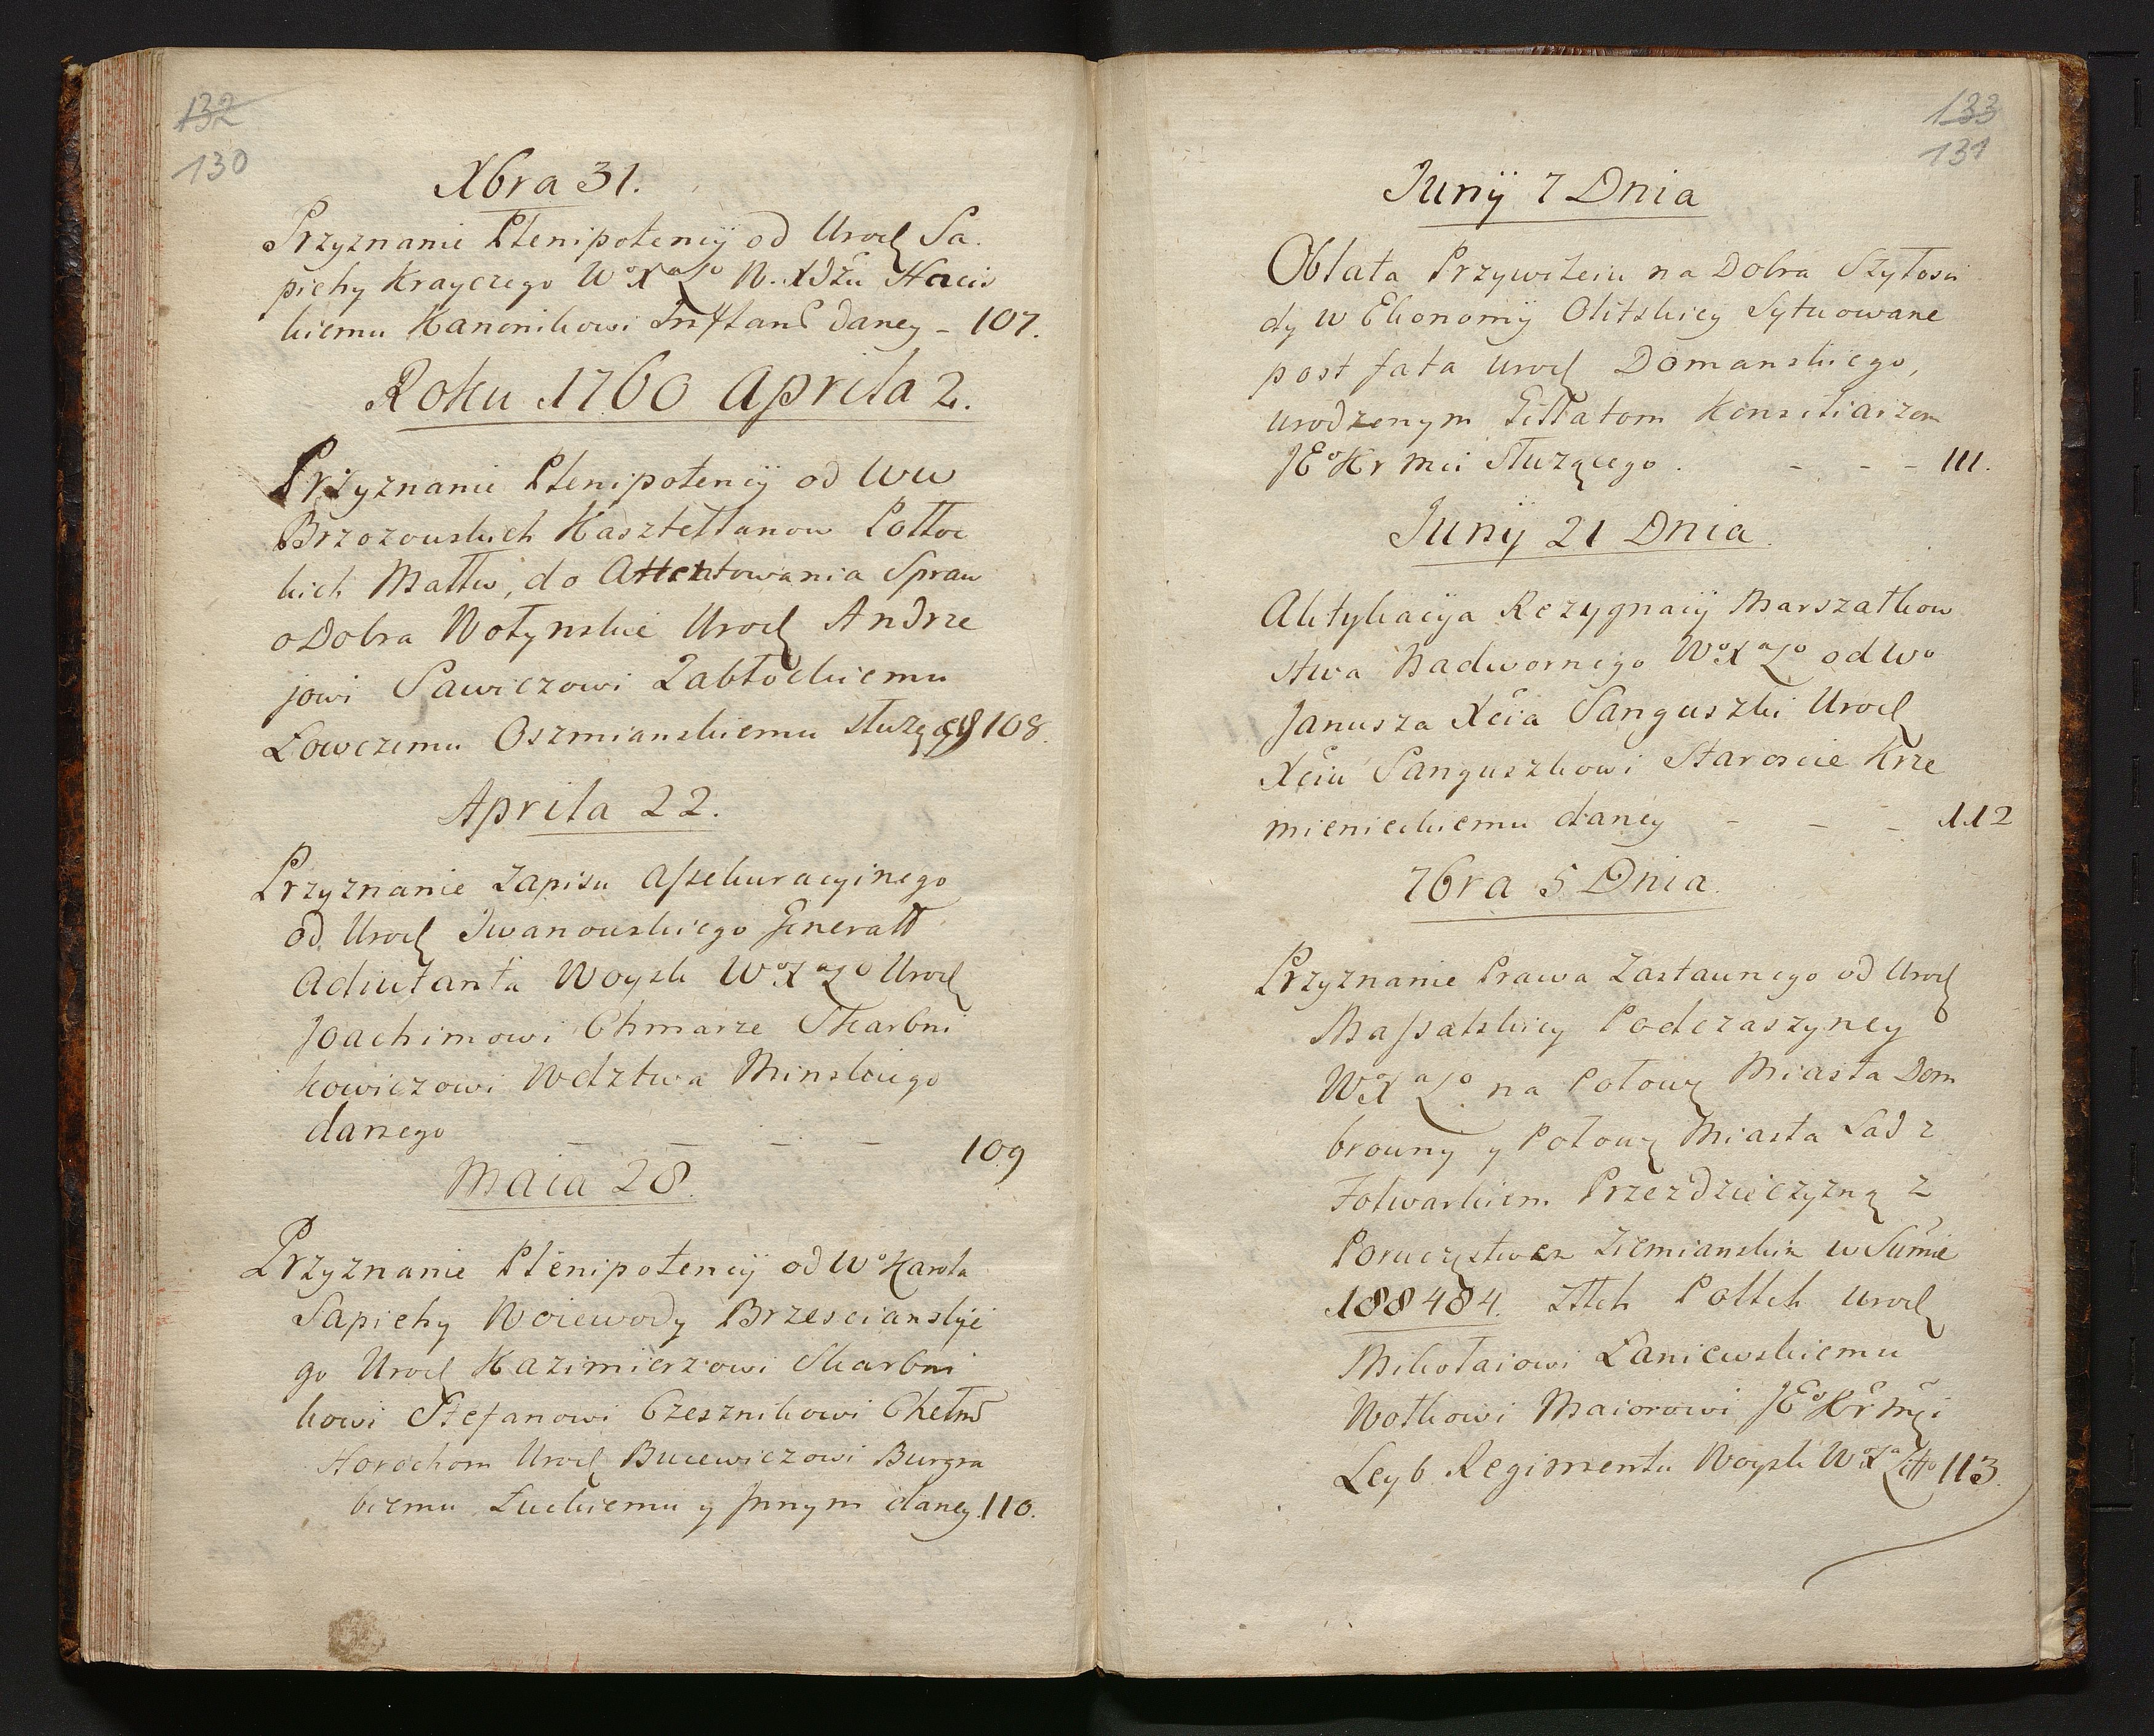 132
130
Xbra 31.
Przyznanie Plenipotencÿ od Urod Sa.
piehy Krayczego WoXaLo N. Xdzu Hacis
kiemu Kanonikowi Inflanc daney – 107.
Roku 1760 Aprila 2.
Przyznanie Plenipotencÿ od WW
Brzozowskich Kasztellanow Połłoc
kich Małłw, do Attentowania Spraw
o Dobra Wołynskie Urod Andrze
jowi Sawiczowi Zabłockiemu
Łowczemu Oszmianskiemu służący 108.
Aprila 22.
Przyznanie Zapisu Assekuracyinego
od Urod Jwanowskiego Jenerałł
Adiutanta Woysk WoXaLo Urod
Joachimowi Chmarze Skarbni
kowiczowi Wdztwa Minskiego
danego – – – – 109
Maia 28.
Przyznanie Plenipotencÿ od Wo Karola
Sapiehy Woiewody Brzescianskie
go Urod Kazimierzowi Skarbni
kowi Stefanowi Czesznikowi Chełm
Horochom Urod Bucewiczowi Burgra
biemu Łuckiemu y Jnnym daney. 110.
133
131
Junÿ 7 Dnia
Oblata Przywileiu na Dobra Szyłosa
dy w Ekonomÿ Olitskiey Sytuowane
post fata Urod Domanskiego,
urodzenym Konsiliarzom
JEo Kr Mci Służącego. – – – 111.
Junÿ 21 Dnia
Aktykacÿa Rezygnacÿ Marszałkow
stwa Nadwornego WoXaLo od Wo
Janusza Xcia Sanguszki Urod
Xciu Sanguszkowi Staroscie Krze
mienieckiemu daney – – – 112
7bra 5 Dnia.
Przyznanie Prawa Zastawnego od Urod
Massalskiey Podczaszyney
WoXaLo na Połowę Miasta Dom
browny y Połowę Miasta Lad z
Folwarkiem Przezdzieczyzną z
Poruczstwem Ziemianskim w Sumie
188484. Złłch Polłch Urod
Mikołaiowi Łaniewskiemu
Wołkowi Maiorowi JEo Kr Mci
Leyb Regimentu Woysk WoXaLitto 113.